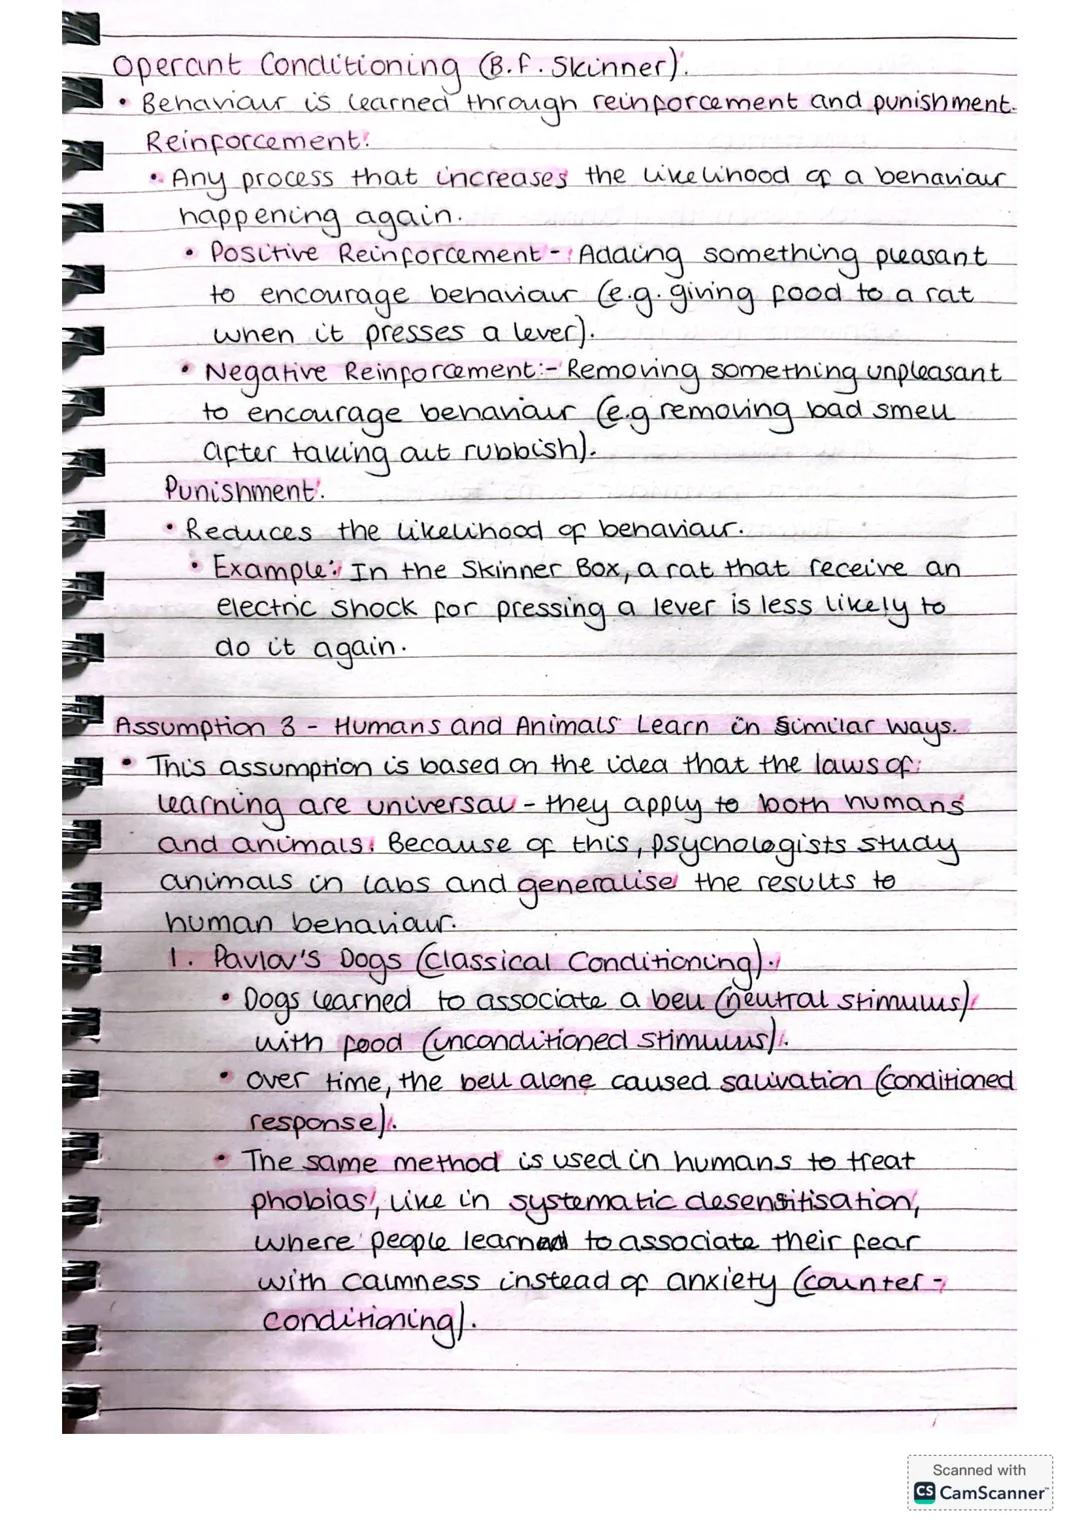 Operant Conditioning (B.f. Skinner).
• Behaviour is learned through reinforcement and punishment.
Reinforcement:
• Any process that increases the likelihood of a behaviour
happening again.
• Positive Reinforcement - Adding something pleasant
to encourage behaviour (e.g. giving food to a rat
when it presses a lever).
• Negative Reinforcement:- Removing something unpleasant
to encourage behaviour (e.g removing bad smell
after taking out rubbish).
Punishment.
• Reduces the likelihood of behaviour.
• Example: In the Skinner Box, a rat that receive an
electric shock for pressing a lever is less likely to
do it again.
Assumption 3 - Humans and Animals Learn in Similar ways.
• This assumption is based on the idea that the laws of
learning are universal - they apply to both humans
and animals. Because of this, psychologists study
animals in labs and generalise the results to
human behaviour.
1. Pavlov's Dogs (Classical Conditioning).
• Dogs learned to associate a bell (neutral stimulus)
with food (unconditioned stimulus).
• Over time, the bell alone caused salivation (conditioned
response).
• The same method is used in humans to treat
phobias, like in systematic desensitisation,
where people learn to associate their fear
with calmness instead of anxiety (counter-
conditioning).
Scanned with
CS CamScanner